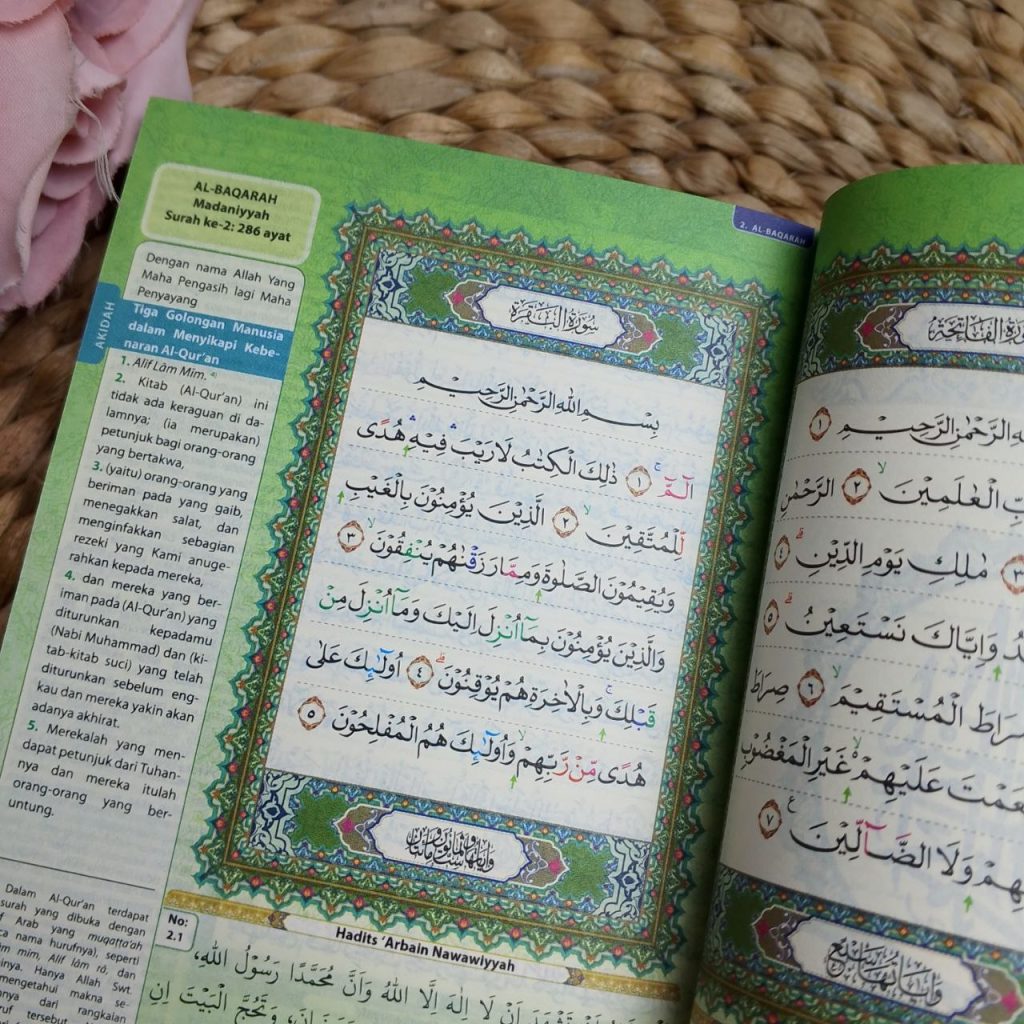 AL-BAQARAH
Madaniyyah
Surah ke-2: 286 ayat
2. AL-BAQARAH
Dengan nama Allah Yang
Maha Pengasih lagi Maha
Penyayang
AKIDAH
Tiga Golongan Manusia
dalam Menyikapi Kebe-
naran Al-Qur'an
1. Alif Lām Mim.
2. Kitab (Al-Qur'an) ini
tidak ada keraguan di da-
lamnya; (ia merupakan)
petunjuk bagi orang-orang
yang bertakwa,
3. (yaitu) orang-orang yang
beriman pada yang gaib,
menegakkan salat, dan
menginfakkan sebagian
rezeki yang Kami anuge-
rahkan kepada mereka,
4. dan mereka yang ber-
iman pada (Al-Qur'an) yang
diturunkan kepadamu
(Nabi Muhammad) dan (ki-
tab-kitab suci) yang telah
diturunkan sebelum eng-
kau dan mereka yakin akan
adanya akhirat.
5. Merekalah yang men-
dapat petunjuk dari Tuhan-
nya dan mereka itulah
orang-orang yang ber-
untung.
Dalam Al-Qur'an terdapat
surah yang dibuka dengan
Arab yang muqaṭṭa'ah
nama hurufnya), seperti
mim, Alif lām rā, dan
Hanya Allah Swt.
mengetahui makna se-
dari rangkaian
tersebut
سُوْرَةُ الْبَقَرَةِ
بِسْمِ اللّٰهِ الرَّحْمٰنِ الرَّحِيْمِ
الۤمّۤ ١ ذٰلِكَ الْكِتٰبُ لَا رَيْبَ فِيْهِ هُدًى
لِّلْمُتَّقِيْنَ ٢ الَّذِيْنَ يُؤْمِنُوْنَ بِالْغَيْبِ
وَيُقِيْمُوْنَ الصَّلٰوةَ وَمِمَّا رَزَقْنٰهُمْ يُنْفِقُوْنَ ٣
وَالَّذِيْنَ يُؤْمِنُوْنَ بِمَآ اُنْزِلَ اِلَيْكَ وَمَآ اُنْزِلَ مِنْ
قَبْلِكَ وَبِالْاٰخِرَةِ هُمْ يُوْقِنُوْنَ ٤ اُولٰۤئِكَ عَلٰى
هُدًى مِّنْ رَّبِّهِمْ وَاُولٰۤئِكَ هُمُ الْمُفْلِحُوْنَ ٥
No:
2.1
Hadits 'Arbain Nawawiyyah
اَنْ لَا اِلٰهَ اِلَّا اللهُ وَاَنَّ مُحَمَّدًا رَسُوْلُ اللهِ،
وَتَحُجَّ الْبَيْتَ اِنِ
الْفَاتِحَةِ
الرَّحْمٰنِ الرَّحِيْمِ ١
الْعٰلَمِيْنَ ٢ الرَّحْمٰنِ
٣ مٰلِكِ يَوْمِ الدِّيْنِ ٤
وَاِيَّاكَ نَسْتَعِيْنُ ٥
الْمُسْتَقِيْمَ ٦ صِرَاطَ
عَلَيْهِمْ غَيْرِ الْمَغْضُوْبِ
وَلَا الضَّاۤلِّيْنَ ٧